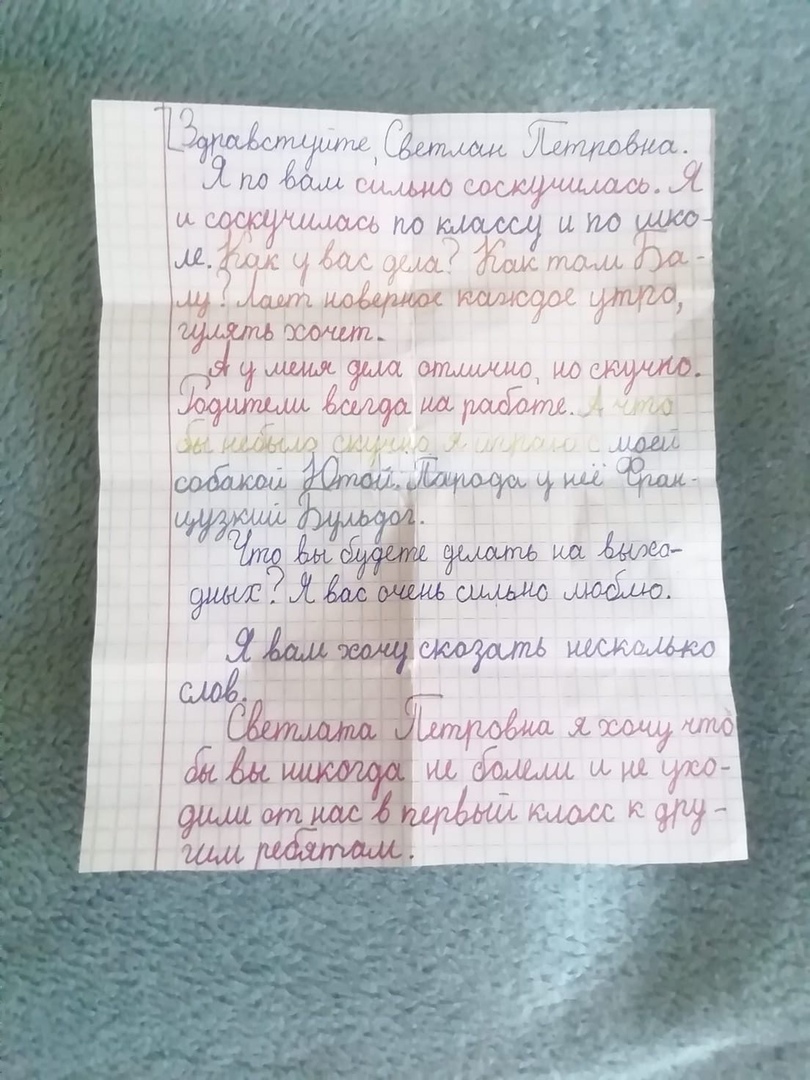 Здравстуйте, Светлан Петровна.
Я по вам сильно соскучилась. Я
и соскучилась по классу и по шко-
ле. Как у вас дела? Как там Ба-
лу? Лает новерное каждое утро,
гулять хочет.
А у меня дела отлично, но скучно.
Родители всегда на работе. А что
бы небыло скучно я играю с моей
собакой Ютой. Парода у неё Фран-
цузкий Бульдог.
Что вы будете делать на выхо-
дных? Я вас очень сильно люблю.
Я вам хочу скозать несколько
слов.
Светлата Петровна я хочу что
бы вы никогда не болели и не ухо-
дили от нас в первый класс к дру-
гим ребятам.